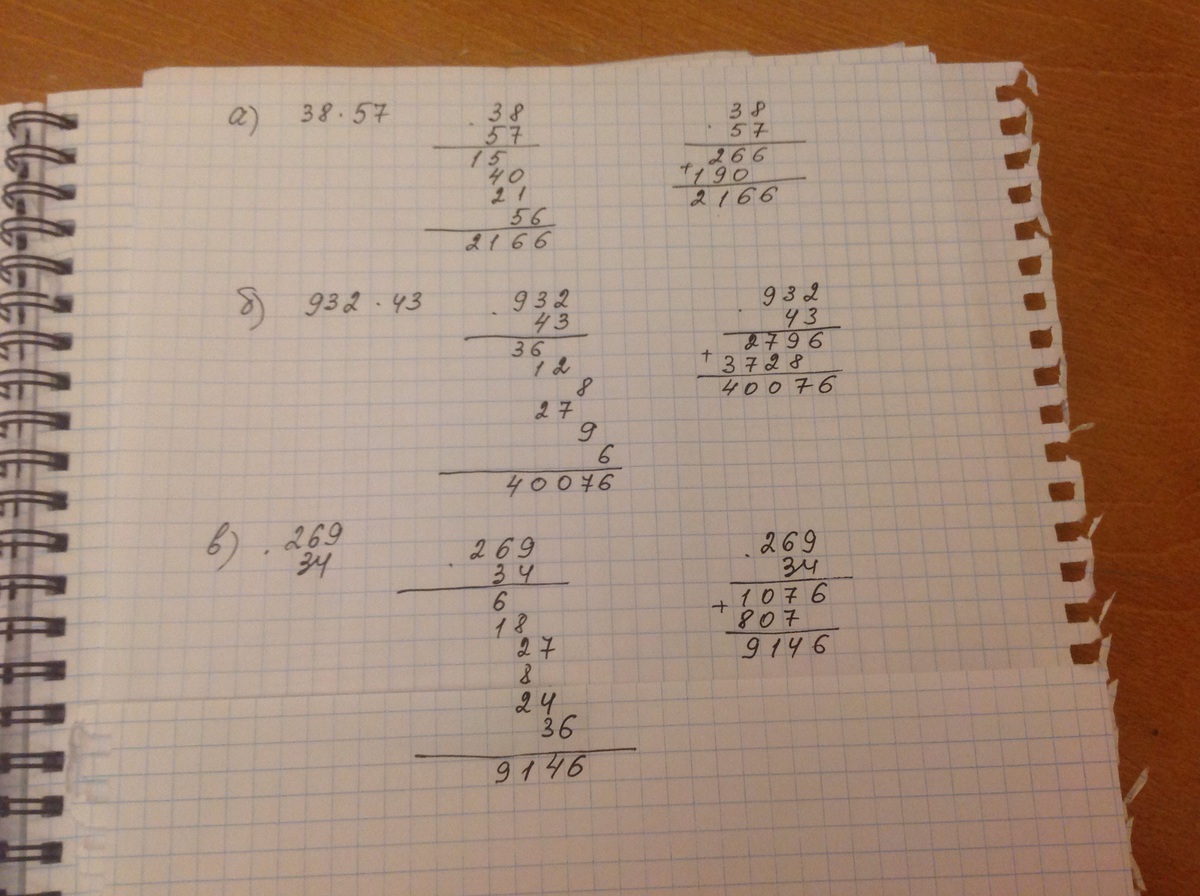 а) 38·57
· 38
57
15
40
21
56
2166
· 38
57
266
+ 190
2166
б) 932·43
· 932
43
36
12
8
27
9
6
40076
· 932
43
2796
+ 3728
40076
в) · 269
34
· 269
34
6
18
27
8
24
36
9146
· 269
34
1076
+ 807
9146